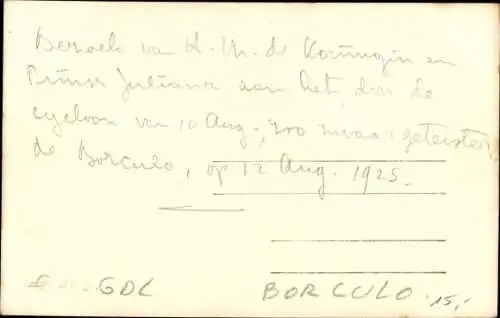 Bezoek van H.M. de Koningin en
Prinses Juliana aan het, door de
cycloon van 10 Aug., zoo zwaar geteister
de Borculo, op 12 Aug. 1925.
GDL BORCULO 15,-